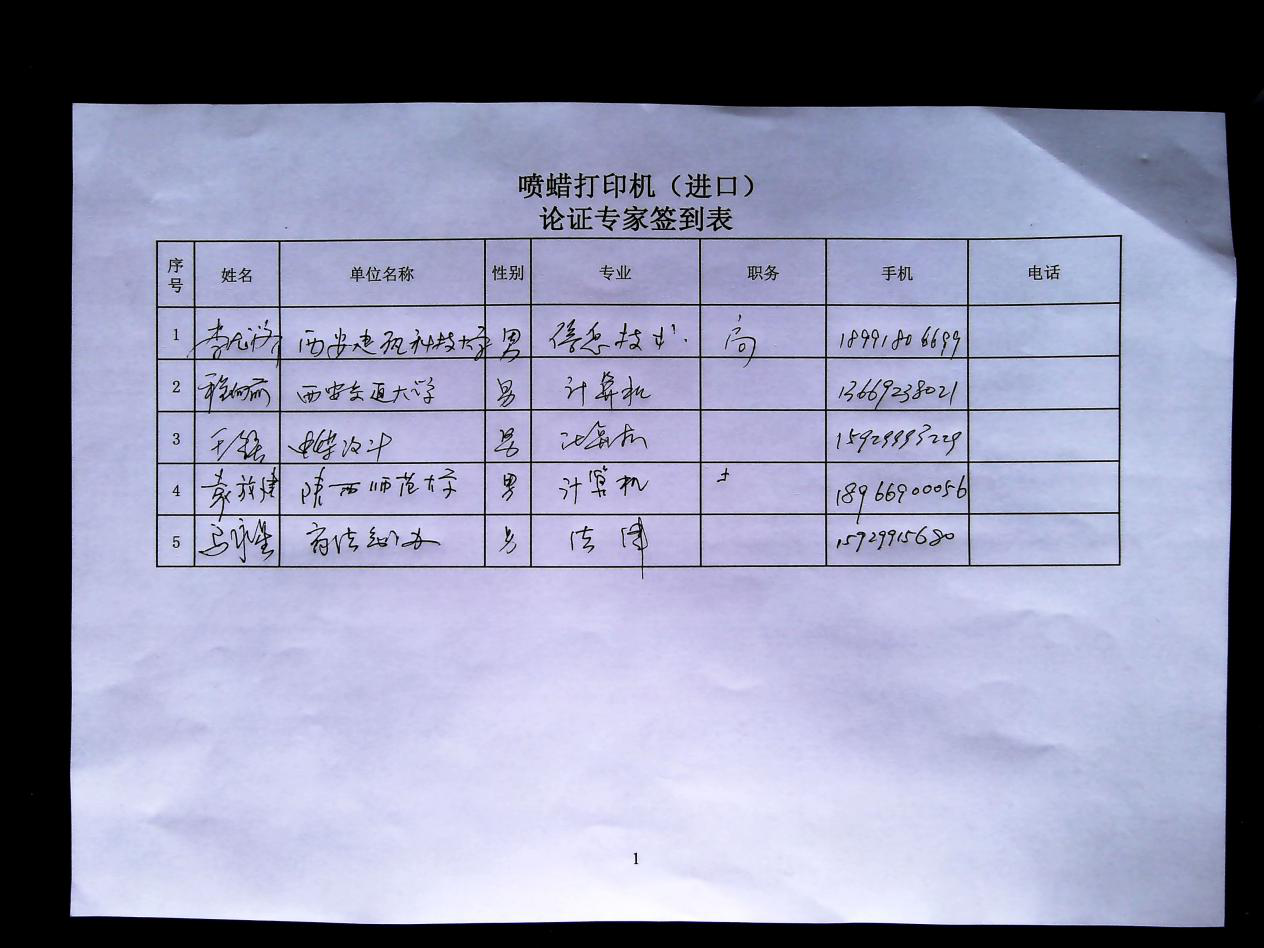 喷蜡打印机（进口）
论证专家签到表
序号 姓名 单位名称 性别 专业 职务 手机 电话
1 西安建筑科技大学 男 信息技术 高 18991806699
2 西安交通大学 男 计算机 13669238021
3 男 计算机
4 陕西师范大学 男 计算机 18966900056
5 男 法律 15929915680
1